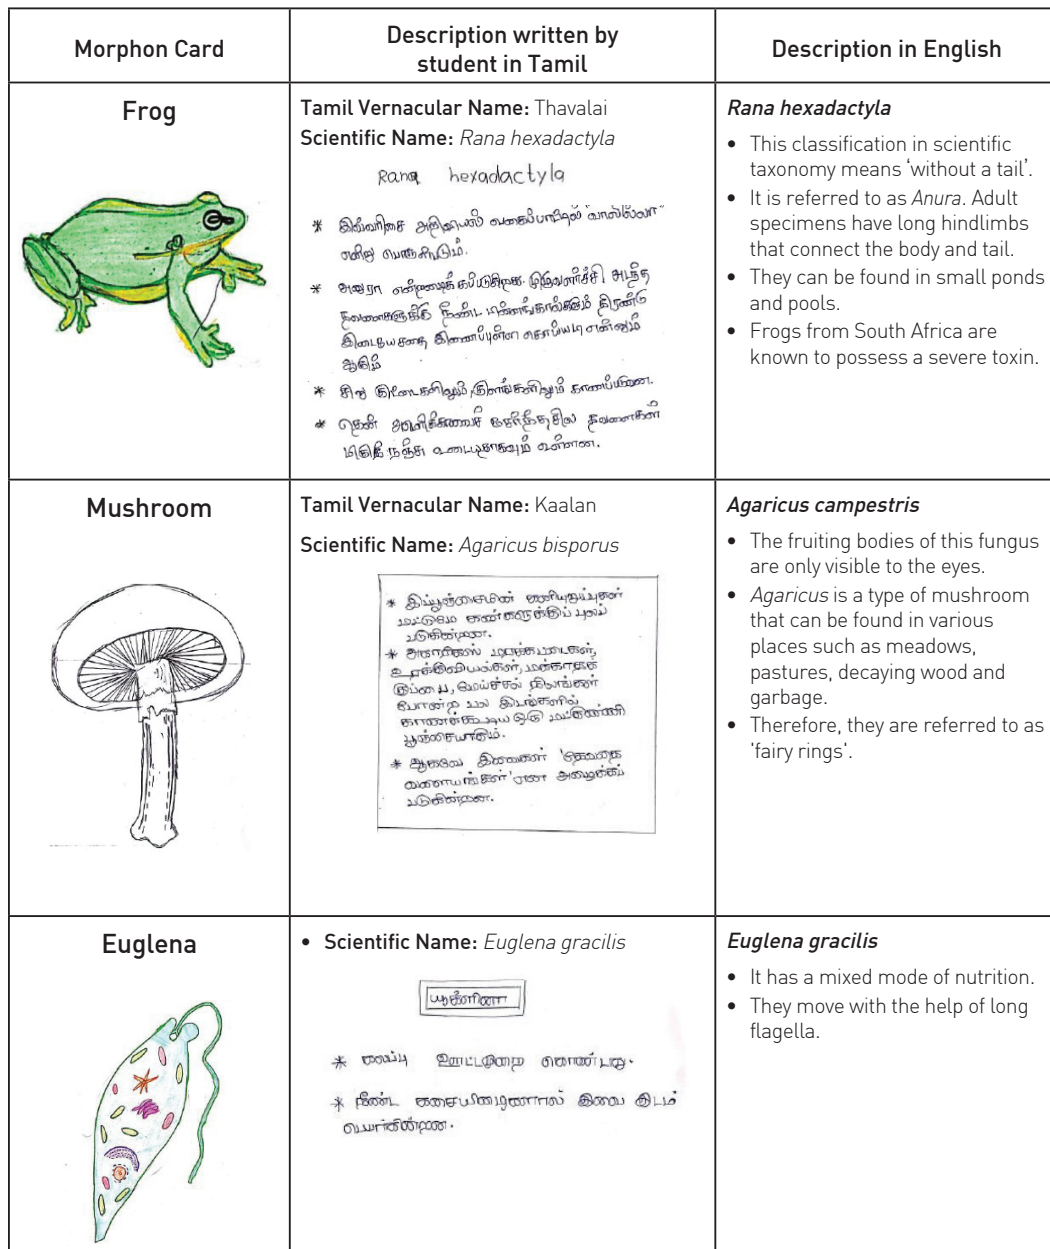 Morphon Card
Description written by
student in Tamil
Description in English
Frog
Tamil Vernacular Name: Thavalai
Scientific Name: Rana hexadactyla
Rana hexadactyla
* இவ்வரிசை அறிவியல் வகைப்பாட்டில் "வாலில்லா"
என்று பொருள்படும்.
* அனுரா என்றழைக்கப்படுகிறது. முதிர்வளர்ச்சி அடைந்த
தவளைகளுக்கு நீண்ட பின்னங்கால்களும் இரண்டு
ஆகும்
* சிறு குட்டைகளிலும், குளங்களிலும் காணப்படும்.
* தென் தவளைகள்
மிகுந்த நஞ்சு உடையதாகவும் உள்ளன.
Rana hexadactyla
• This classification in scientific
taxonomy means 'without a tail'.
• It is referred to as Anura. Adult
specimens have long hindlimbs
that connect the body and tail.
• They can be found in small ponds
and pools.
• Frogs from South Africa are
known to possess a severe toxin.
Mushroom
Tamil Vernacular Name: Kaalan
Scientific Name: Agaricus bisporus
* இப்பூஞ்சையின் கனியுறுப்புகள்
மட்டுமே கண்களுக்குப் புலப்
படுகின்றன.
* அகாரிகஸ் மரக்கட்டைகள்,
குப்பை, மேய்ச்சல் நிலங்கள்
போன்ற பல இடங்களில்
காணக்கூடிய ஒரு மட்குண்ணி
பூஞ்சையாகும்.
* ஆகவே இவைகள் 'தேவதை
வளையங்கள்' என அழைக்கப்
படுகின்றன.
Agaricus campestris
• The fruiting bodies of this fungus
are only visible to the eyes.
• Agaricus is a type of mushroom
that can be found in various
places such as meadows,
pastures, decaying wood and
garbage.
• Therefore, they are referred to as
'fairy rings'.
Euglena
• Scientific Name: Euglena gracilis
யூக்ளினா
* கலப்பு ஊட்டமுறை கொண்டது.
* நீண்ட கசையிழையினால் இவை இடம்
பெயர்கின்றன.
Euglena gracilis
• It has a mixed mode of nutrition.
• They move with the help of long
flagella.